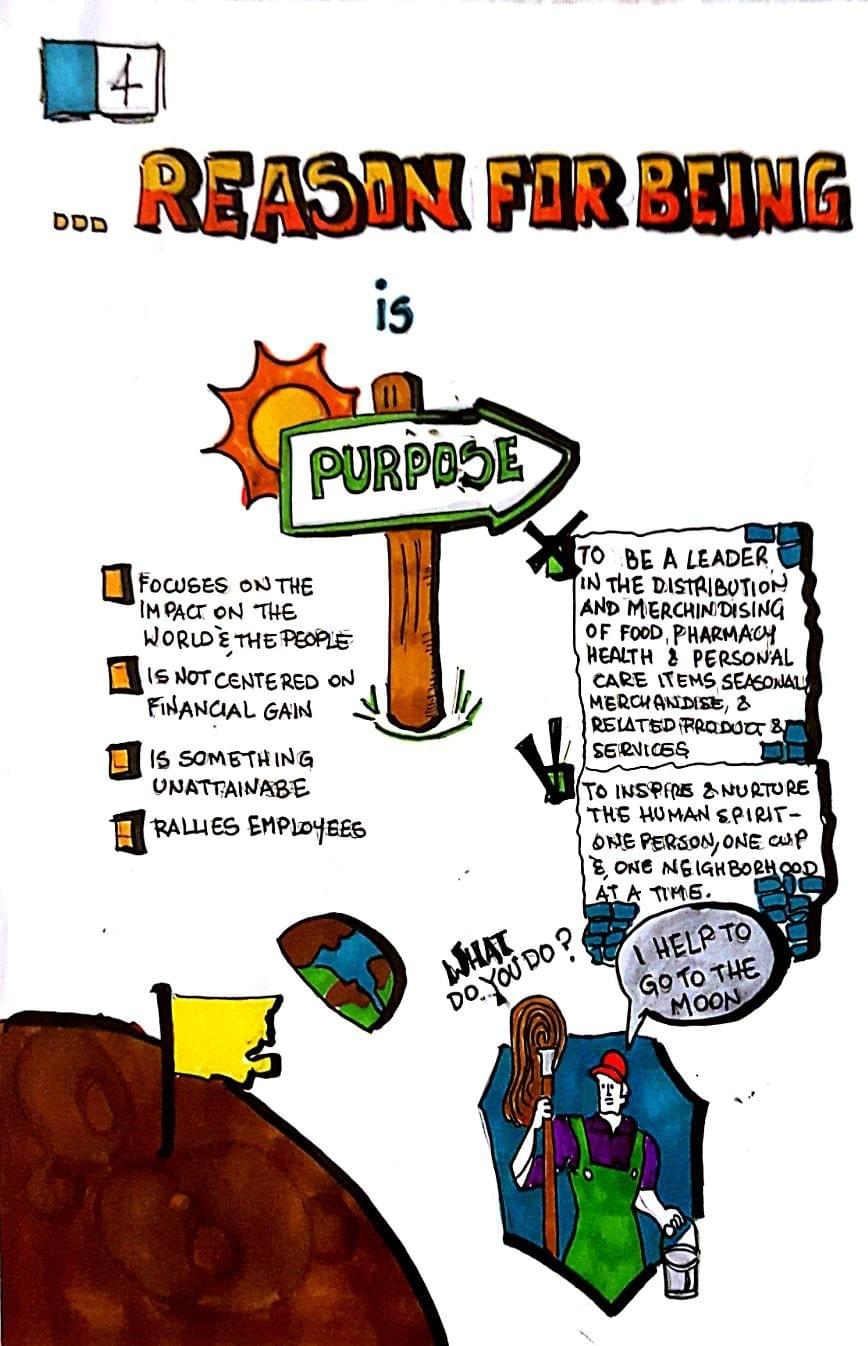 4
... REASON FOR BEING
is
PURPOSE
FOCUSES ON THE
IMPACT ON THE
WORLD & THE PEOPLE
IS NOT CENTERED ON
FINANCIAL GAIN
IS SOMETHING
UNATTAINABE
RALLIES EMPLOYEES
TO BE A LEADER
IN THE DISTRIBUTION
AND MERCHINDISING
OF FOOD, PHARMACY
HEALTH & PERSONAL
CARE ITEMS, SEASONAL
MERCHANDISE, &
RELATED PRODUCT &
SERVICES
TO INSPIRE & NURTURE
THE HUMAN SPIRIT-
ONE PERSON, ONE CUP
& ONE NEIGHBORHOOD
AT A TIME.
WHAT
DO YOU DO?
I HELP TO
GO TO THE
MOON